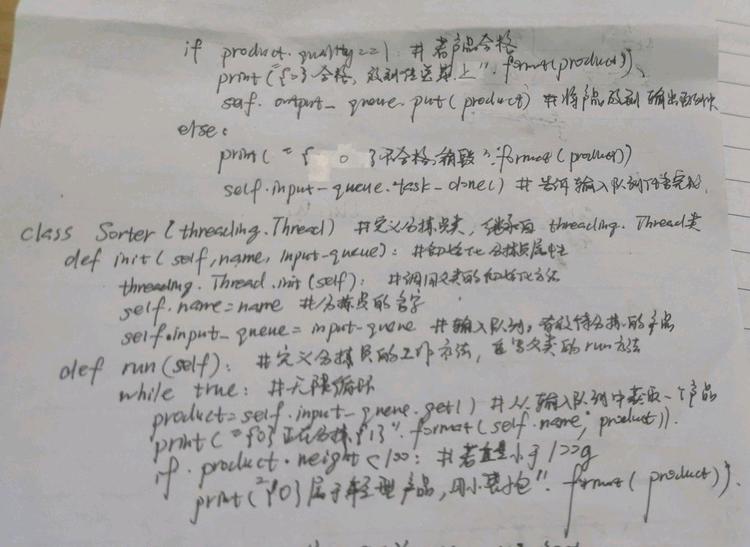 if product.quality==1: #若产品合格
print("{0}合格,放到传送带上".format(product))
self.output_queue.put(product) #将产品放到输出队列
else:
print("{0}不合格,销毁".format(product))
self.input-queue.task-done() #告诉输入队列任务完成
class Sorter(threading.Thread) #定义分拣员类,继承自threading.Thread类
def init(self,name,input-queue): #初始化分拣员属性
threading.Thread.init(self): #调用父类的初始化方法
self.name=name #分拣员的名字
self.input_queue=input-queue #输入队列,存放待分拣的产品
def run(self): #定义分拣员的工作方法,重写父类的run方法
while true: #无限循环
product=self.input-queue.get() #从输入队列中获取一个产品
print("{0}正在分拣{1}".format(self.name,product)).
if product.weight<100: #若重量小于100g
print("{0}属于轻型产品,用小袋包".format(product)).